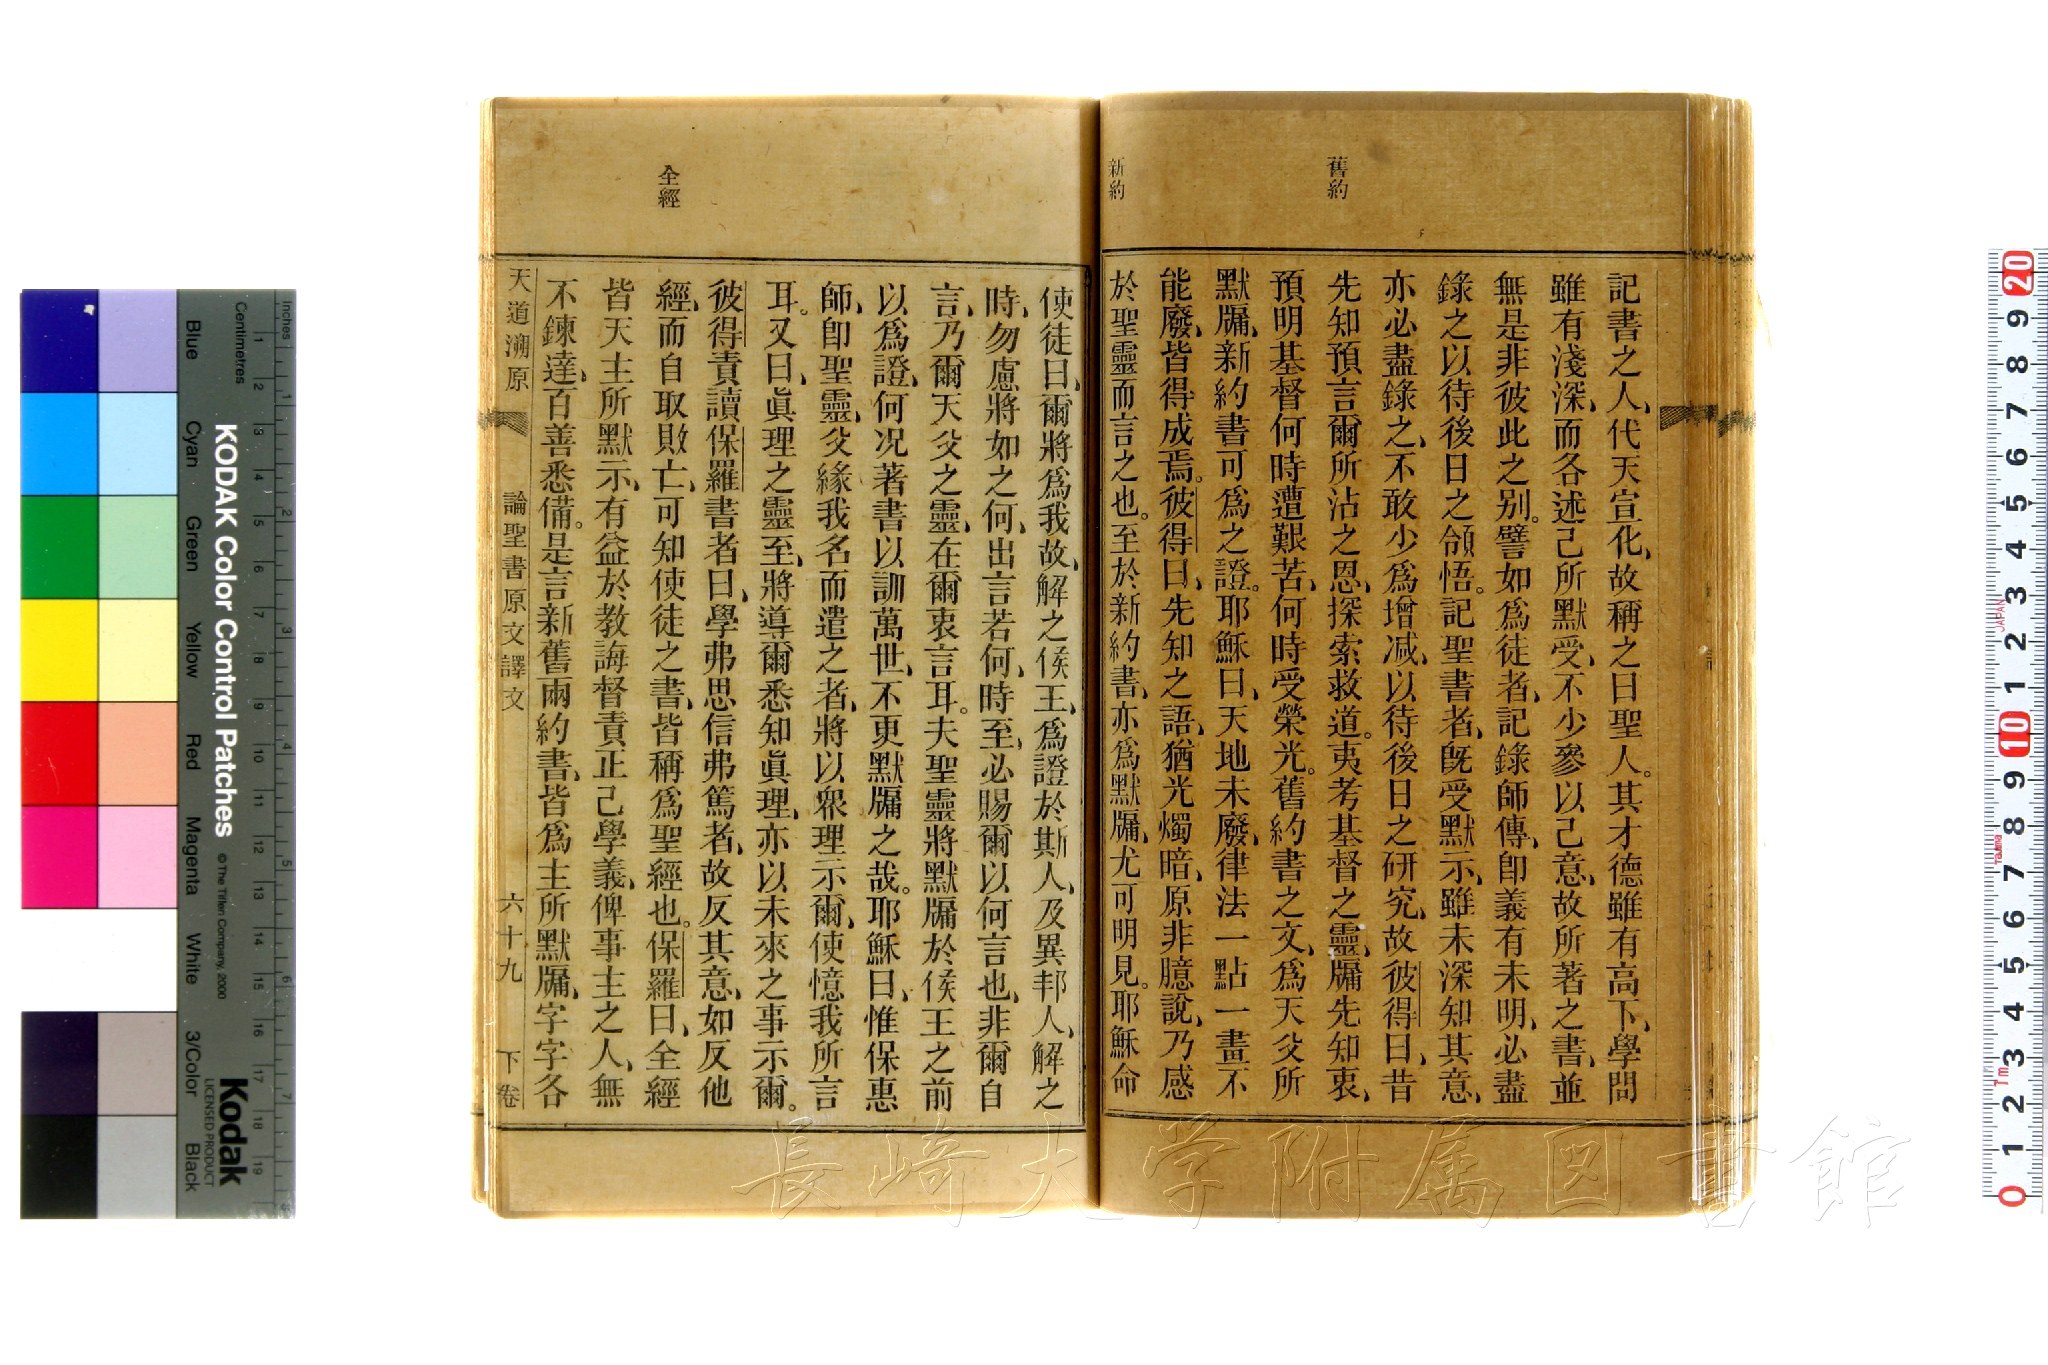 舊約
新約
記書之人、代天宣化、故稱之曰聖人。其才德雖有高下、學問
雖有淺深、而各述己所默受、不少參以己意、故所著之書、並
無是非彼此之別。譬如爲徒者、記錄師傳、卽義有未明、必盡
錄之以待後日之領悟。記聖書者、旣受默示、雖未深知其意、
亦必盡錄之、不敢少爲增減、以待後日之研究、故彼得曰、昔
先知預言爾所沾之恩、探索救道。夷考基督之靈、牖先知衷、
預明基督何時遭艱苦、何時受榮光。舊約書之文、爲天父所
默牖、新約書可爲之證。耶穌曰、天地未廢、律法一點一畫不
能廢、皆得成焉。彼得曰、先知之語、猶光燭暗、原非臆說、乃感
於聖靈而言之也。至於新約書、亦爲默牖、尤可明見。耶穌命
全經
使徒曰、爾將爲我故、解之侯王、爲證於斯人、及異邦人、解之
時、勿慮將如之何、出言若何、時至、必賜爾以何言也、非爾自
言、乃爾天父之靈、在爾衷言耳。夫聖靈將默牖於侯王之前
以爲證、何況著書以訓萬世、不更默牖之哉。耶穌曰、惟保惠
師、卽聖靈、父緣我名而遣之者、將以衆理示爾、使憶我所言
耳。又曰、眞理之靈至、將導爾悉知眞理、亦以未來之事示爾。
彼得責讀保羅書者曰、學弗思信弗篤者、故反其意、如反他
經、而自取敗亡、可知使徒之書、皆稱爲聖經也。保羅曰、全經
皆天主所默示、有益於教誨督責正己學義、俾事主之人、無
不鍊達、百善悉備。是言新舊兩約書、皆爲主所默牖、字字各
天道溯原 論聖書原文譯文 六十九 下卷
KODAK Color Control Patches
©The Tiffen Company, 2000
Kodak
LICENSED PRODUCT
Inches
Centimetres
Blue
Cyan
Green
Yellow
Red
Magenta
White
3/Color
Black
1 2 3 4 5 6 7 8 9 10 11 12 13 14 15 16 17 18 19
1 2 3 4 5 6 7
20 9 8 7 6 5 4 3 2 1 10 9 8 7 6 5 4 3 2 1 0
JAPAN
長崎大学附属図書館